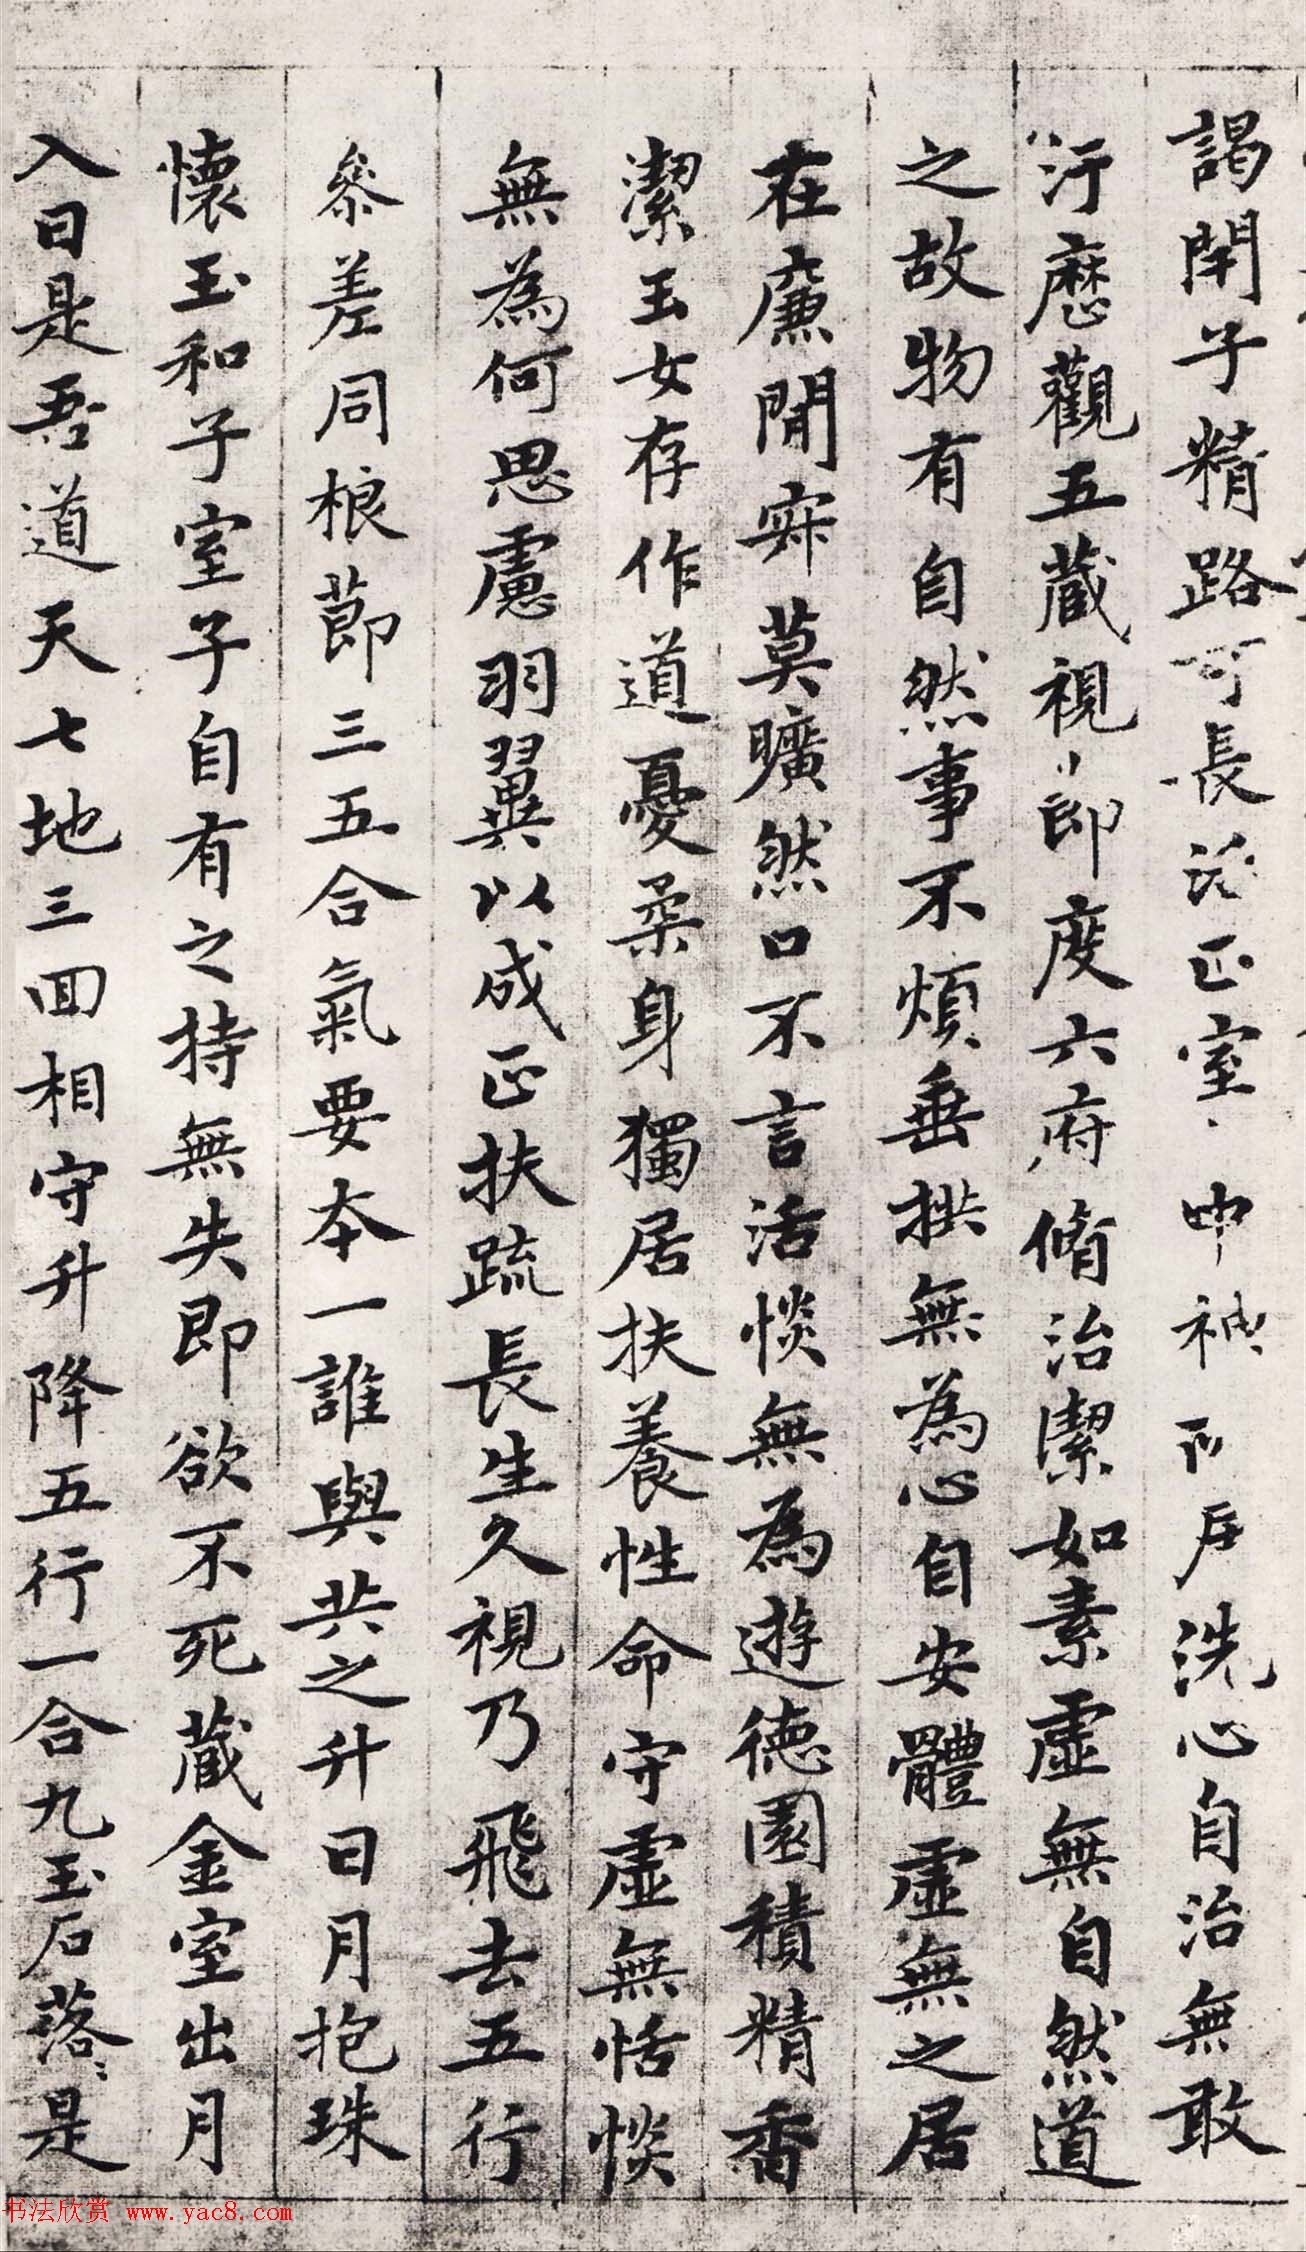 謁閇子精路可長活正室中神所戶洗心自治無敢
汙歷觀五藏視節度六府脩治潔如素虛無自然道
之故物有自然事不煩垂拱無為心自安體虛無之居
在廉閒寂莫曠然口不言活惔無為遊德園積精香
潔玉女存作道憂柔身獨居扶養性命守虛無恬惔
無為何思慮羽翼以成正扶疏長生久視乃飛去五行
叅差同根節三五合氣要本一誰與共之升日月抱珠
懷玉和子室子自有之持無失即欲不死藏金室出月
入日是吾道天七地三回相守升降五行一合九玉石落〻是
书法欣赏 www.yac8.com